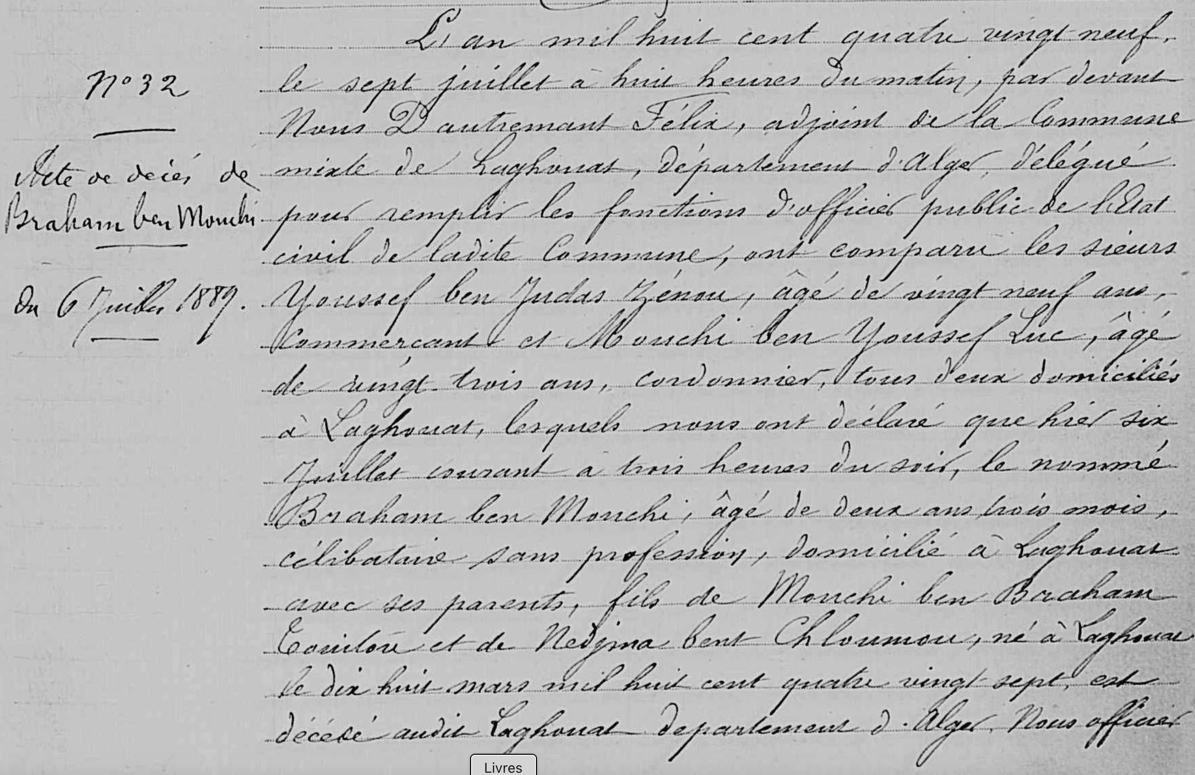 N° 32
Acte de décés de
Braham ben Mouchi
du 6 Juillet 1889.
L'an mil huit cent quatre vingt neuf,
le sept juillet à huit heures du matin, par devant
Nous Dautremant Félix, adjoint de la Commune
mixte de Laghouat, département d'Alger, délégué
pour remplir les fonctions d'officier public de l'Etat
civil de ladite Commune, ont comparu les sieurs
Youssef ben Judas Zénou, âgé de vingt neuf ans,
Commerçant et Mouchi ben Youssef Luc, âgé
de vingt trois ans, cordonnier, tous deux domiciliés
à Laghouat, lesquels nous ont déclaré que hier six
Juillet courant à trois heures du soir, le nommé
Braham ben Mouchi, âgé de deux ans trois mois,
célibataire sans profession, domicilié à Laghouat
avec ses parents, fils de Mouchi ben Braham
et de Nedjma bent Chloumou, né à Laghouat
le dix huit mars mil huit cent quatre vingt sept, est
décédé audit Laghouat departement d'Alger. Nous officier
Livres